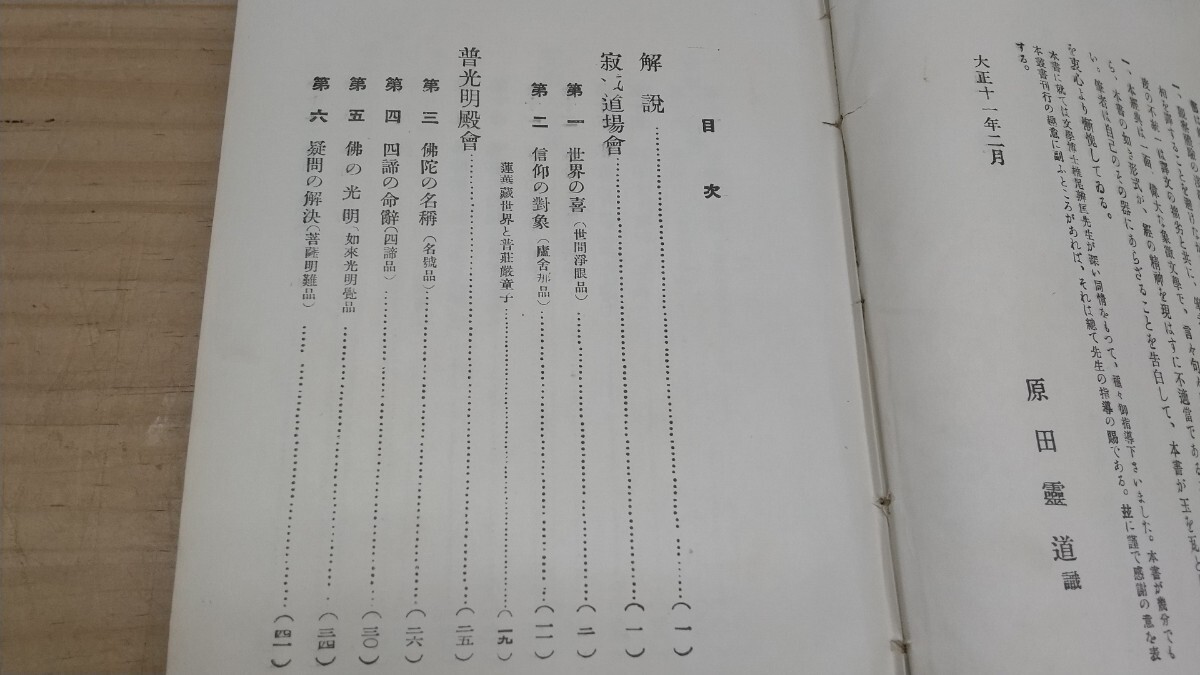 一、本經典は一面、偉大な象徵文學で、言々句
ら、本書の如き形式が、經の精神を現はすに不適當である
い。編者は自己のその器にあらざることを告白して、本書が玉を瓦と
を衷心より慚愧してゐる。
本書に就ては文學博士椎尾辨匡先生が深い同情をもつて、種々御指導下さいました。本書が幾分でも
本叢書刊行の趣意に副ふところがあれば、それは總て先生の指導の賜である。玆に謹で感謝の意を表
する。
大正十一年二月
原田靈道識
目次
解說……(一)
寂滅道場會……(一)
第一 世界の喜(世間淨眼品)……(二)
第二 信仰の對象(盧舍那品)……(一一)
蓮華藏世界と普莊嚴童子……(一九)
普光明殿會……(二五)
第三 佛陀の名稱(名號品)……(二六)
第四 四諦の命辭(四諦品)……(三〇)
第五 佛の光明(如來光明覺品……(三四)
第六 疑問の解決(菩薩明難品)……(四一)